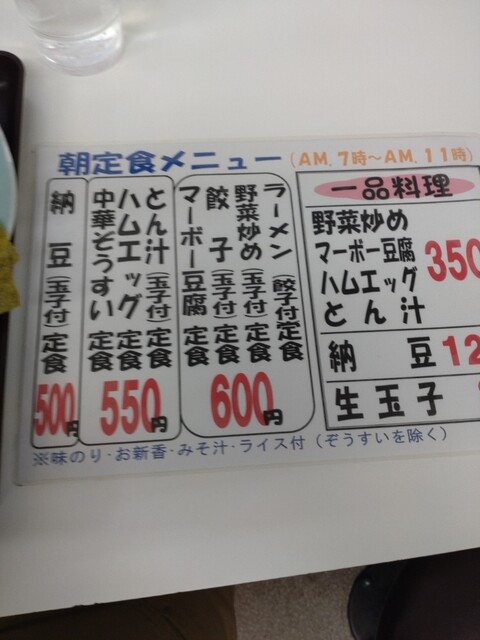 朝定食メニュー(AM.7時～AM.11時)
ラーメン(餃子付)定食
野菜炒め(玉子付)定食
餃子(玉子付)定食
マーボー豆腐定食
600円
とん汁(玉子付)定食
ハムエッグ定食
中華ぞうすい定食
550円
納豆(玉子付)定食
500円
一品料理
野菜炒め
マーボー豆腐
ハムエッグ
とん汁
350
納豆 12
生玉子
※味のり・お新香・みそ汁・ライス付(ぞうすいを除く)